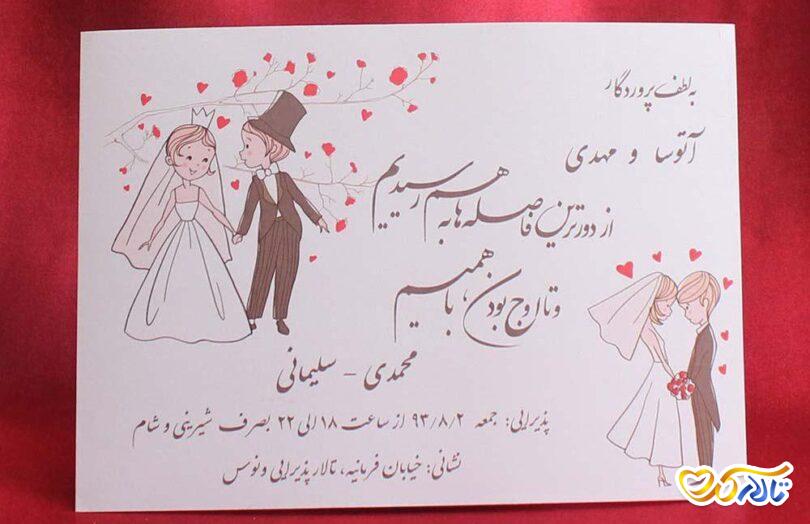 به لطف پروردگار
آتوسا و مهدی
از دورترین فاصله‌ها به هم رسیدیم
و تا اوج بودن، با همیم
محمدی - سلیمانی
پذیرایی: جمعه ۹۳/۸/۲ از ساعت ۱۸ الی ۲۲ بصرف شیرینی و شام
نشانی: خیابان فرمانیه، تالار پذیرایی ونوس
تالار کده